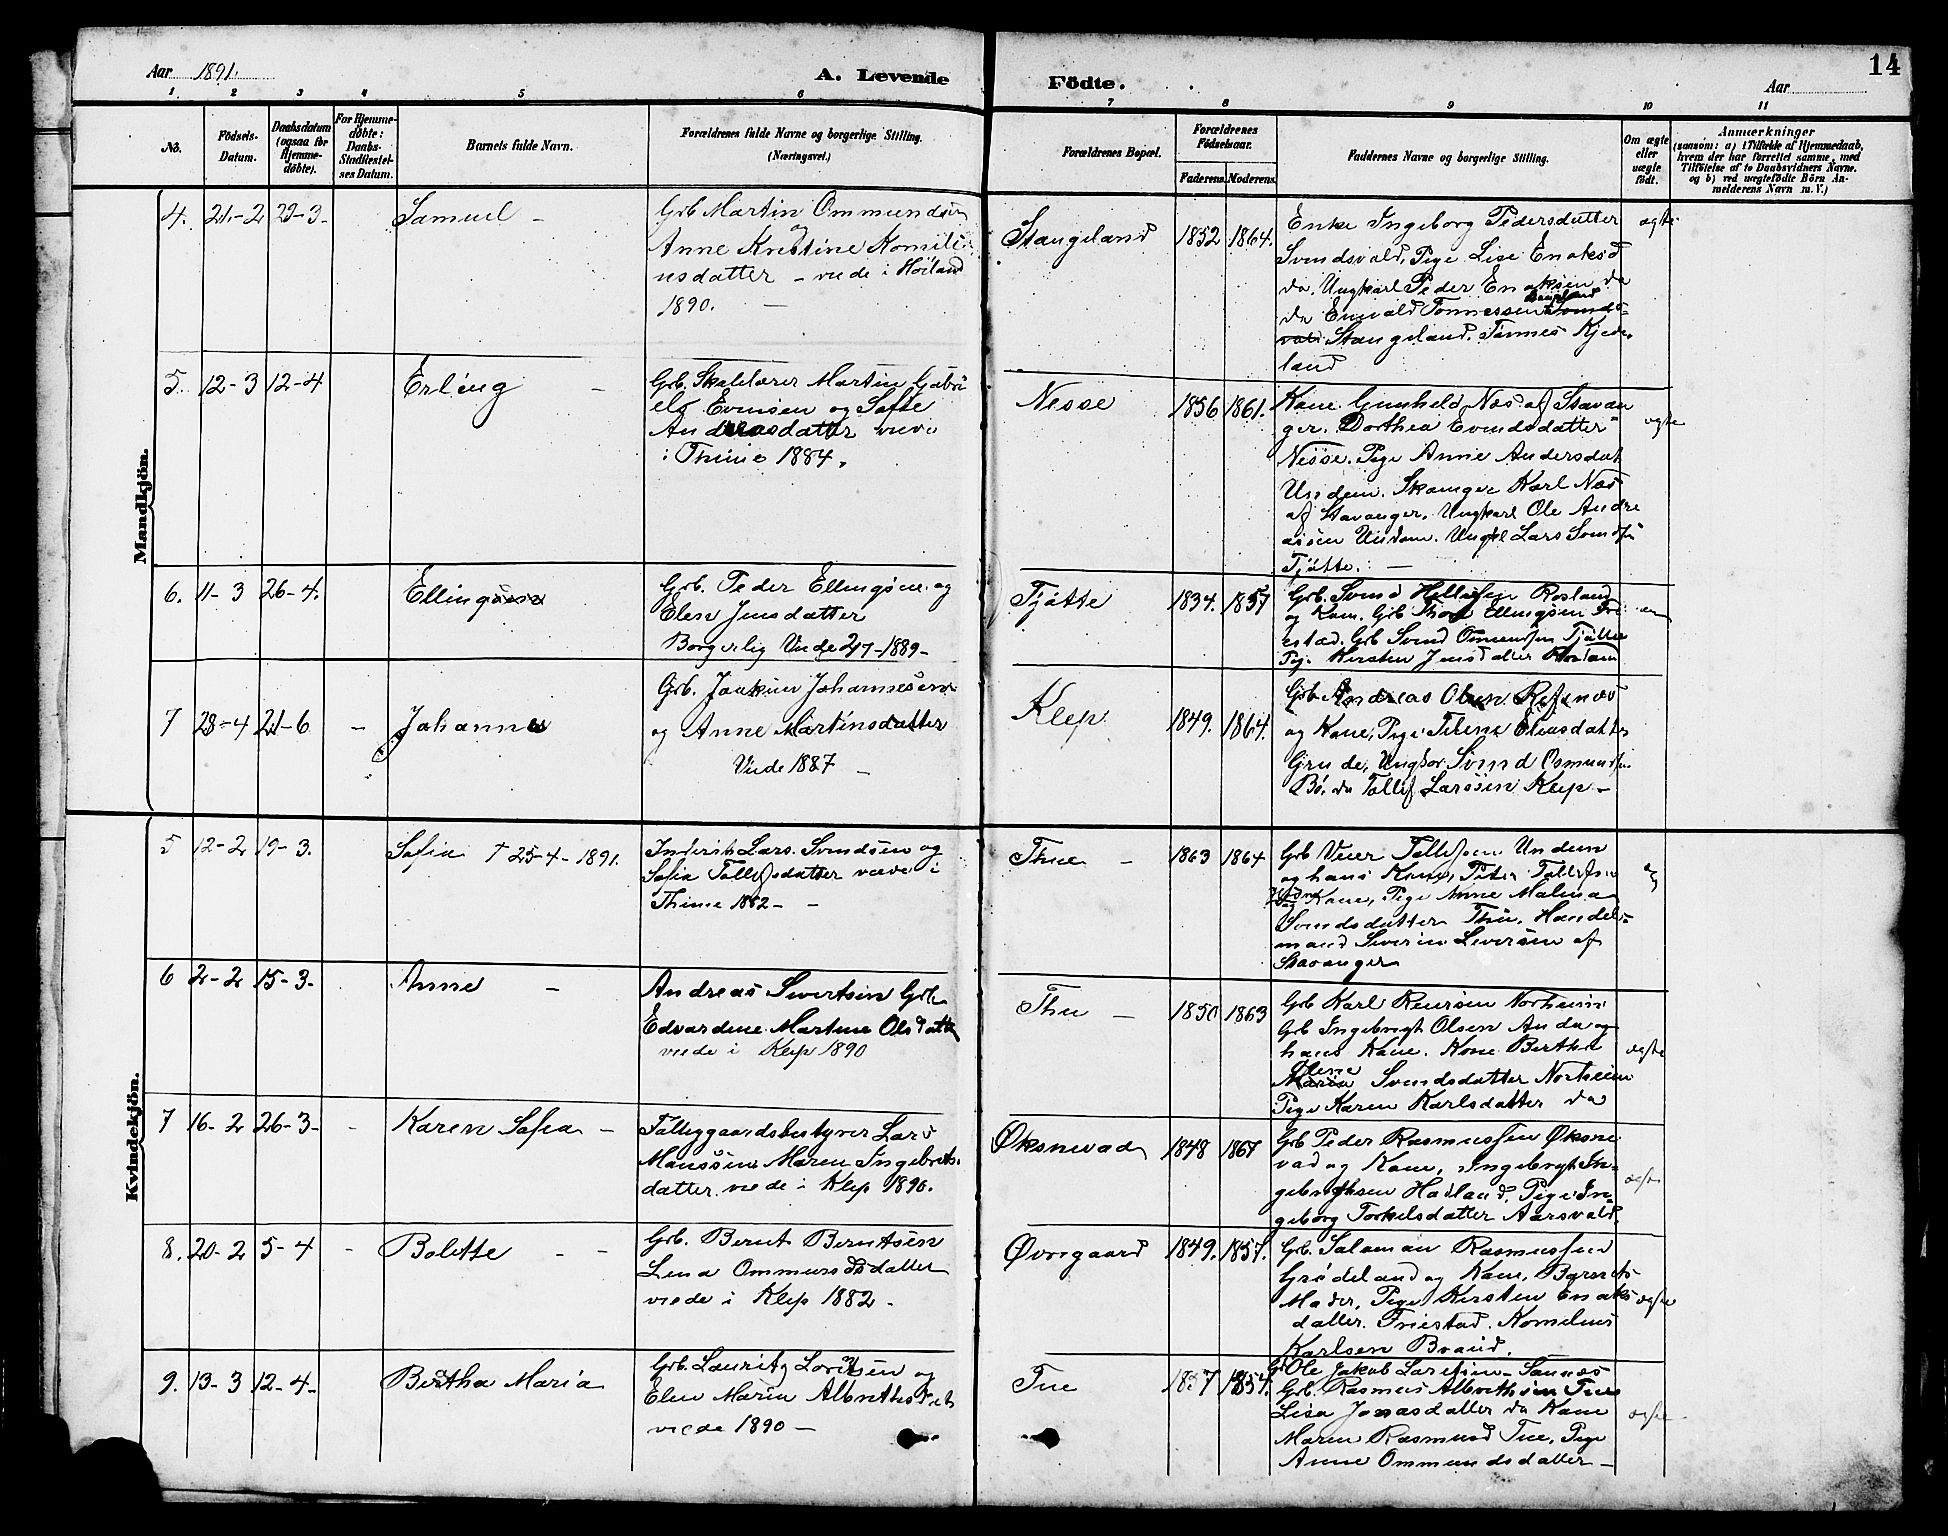 Aar 1891.
A. Levende
Födte.
Aar
14
1. 2 3 4 5 6 7 8 9 10 11
No.
Födsels-
Datum.
Daabsdatum
(ogsaa for
Hjemme-
döbte).
For Hjemme-
döbte:
Daabs-
Stadfæstel-
ses Datum.
Barnets fulde Navn.
Forældrenes fulde Navne og borgerlige Stilling.
(Næringsvei.)
Forældrenes Bopæl.
Forældrenes
Födselsaar.
Faderens. Moderens.
Faddernes Navne og borgerlige Stilling.
Om ægte
eller
uægte
födt.
Anmærkninger
(saasom: a) i Tilfælde af Hjemmedaab,
hvem der har forrettet samme, med
Tilföielse af to Daabsvidners Navne.
og b) ved uægtefödte Börn An-
melderens Navn m. V.)
Mandkjön.
4. 21-2 29-3.
Samuel -
Grb Martin Ommundsen
og
Anne Kristine Korneli
usdatter - viede i Høiland
1890. -
Stangeland
1852 1864.
Enke Ingeborg Pedersdatter
Svendsvold, Pige Lise Enoksd
do. Ungkarl Peder Enoksen do
do Enevald Tønnessen
Stangeland. Tønnes Kjede
land
ægte
5. 12-3 12-4
Erling -
Grb. Skolelærer Martin Gabri
els Evensen og Sofie
Andreasdatter viede
i Thime 1884.
Nesse
1856 1861.
Kone Gunhild Næs af Stavan
ger. Dorthea Evendsdatter
Nesse. Pige Anne Andersdat
Undem. Karl Næs
af Stavanger, Ungkarl Ole Andre
assen Undem. Ungkl Lars Svends
Tjøtte. -
ægte
6. 11-3 26-4.
Elling
Grb. Peder Ellingsen og
Elen Jensdatter
Borgerlig Viede 2/7-1889-
Tjøtte
1834. 1857
Grb. Svend Rosland
og Kone. Grb Ellingsen Fri
estad. Grb Svend Tjøtte
Kirsten Jensdatter
7 28-4 21-6 -
Johanne
Grb. Joakim Johannesen
og Anne Martinsdatter
Viede 1887 -
Klep
1849. 1864.
Grb Andreas Olsen Refsnæs
og Kone, Pige Eliasdatter
Grude, Svend Osmunds
Bø. do Tollef Larssen Klep -
Kvindekjön.
5 12-2 19-3.
Sofia † 25-4-1891.
Inderst Lars Svendsen og
Sofia Tollefsdatter viede i
Thime 1882 - -
Thue -
1863 1864
Grb Veier Tollefsen Undem
og hans Kone, Peter Tollefsen
Kone, Pige Anne Malena
Svendsdatter Thu, Handels-
mand Severin Seversen af
Stavanger
6 2-2 15-3.
Anne -
Andreas Sivertsen Grb.
Edvardine Martine Olsdatter
viede i Klep 1890
Thu -
1850 1863
Grb Karl Norheim
Grb Ingebrigt Olsen Anda og
hans Kone. Kone Bertha
Olene
Maria Svendsdatter Norheim
Pige Karen Karlsdatter do
ægte
7 16-2 26-3- -
Karen Sofia -
Fattiggaardsbestyrer Lars
Monssen Maren Ingebrets
datter viede i Klep 1890.
Øksnevad
1848 1867
Grb Peder Rasmussen Øksne
vad og Kone, Ingebrigt In-
gebrigtsen Hatland, Pige In-
geborg Torkelsdatter Aarsvold.
8. 20-2 5-4 -
Bolette - -
Grb. Bernt Berntsen
Lena Ommundsdatter
viede i Klep 1882.
Øvregaard
1849. 1857.
Grb. Salamon Rasmussen
Grødeland og Kone, Barnets
Moder, Pige Kirsten Enoks
datter. Friestad. Kornelius
Karlsen Braud.
ægte
9. 13-3 12-4-
Bertha Maria
Grb. Lauritz Loritsen og
Elen Maria
viede 1890 -
Tue
Ole Jakob Sannes
Grb. Rasmus Albrethsen Tue
Lisa Jonasdatter do Kone
Maren Rasmusd Tue, Pige
Anne Ommundsdatter -
ægte